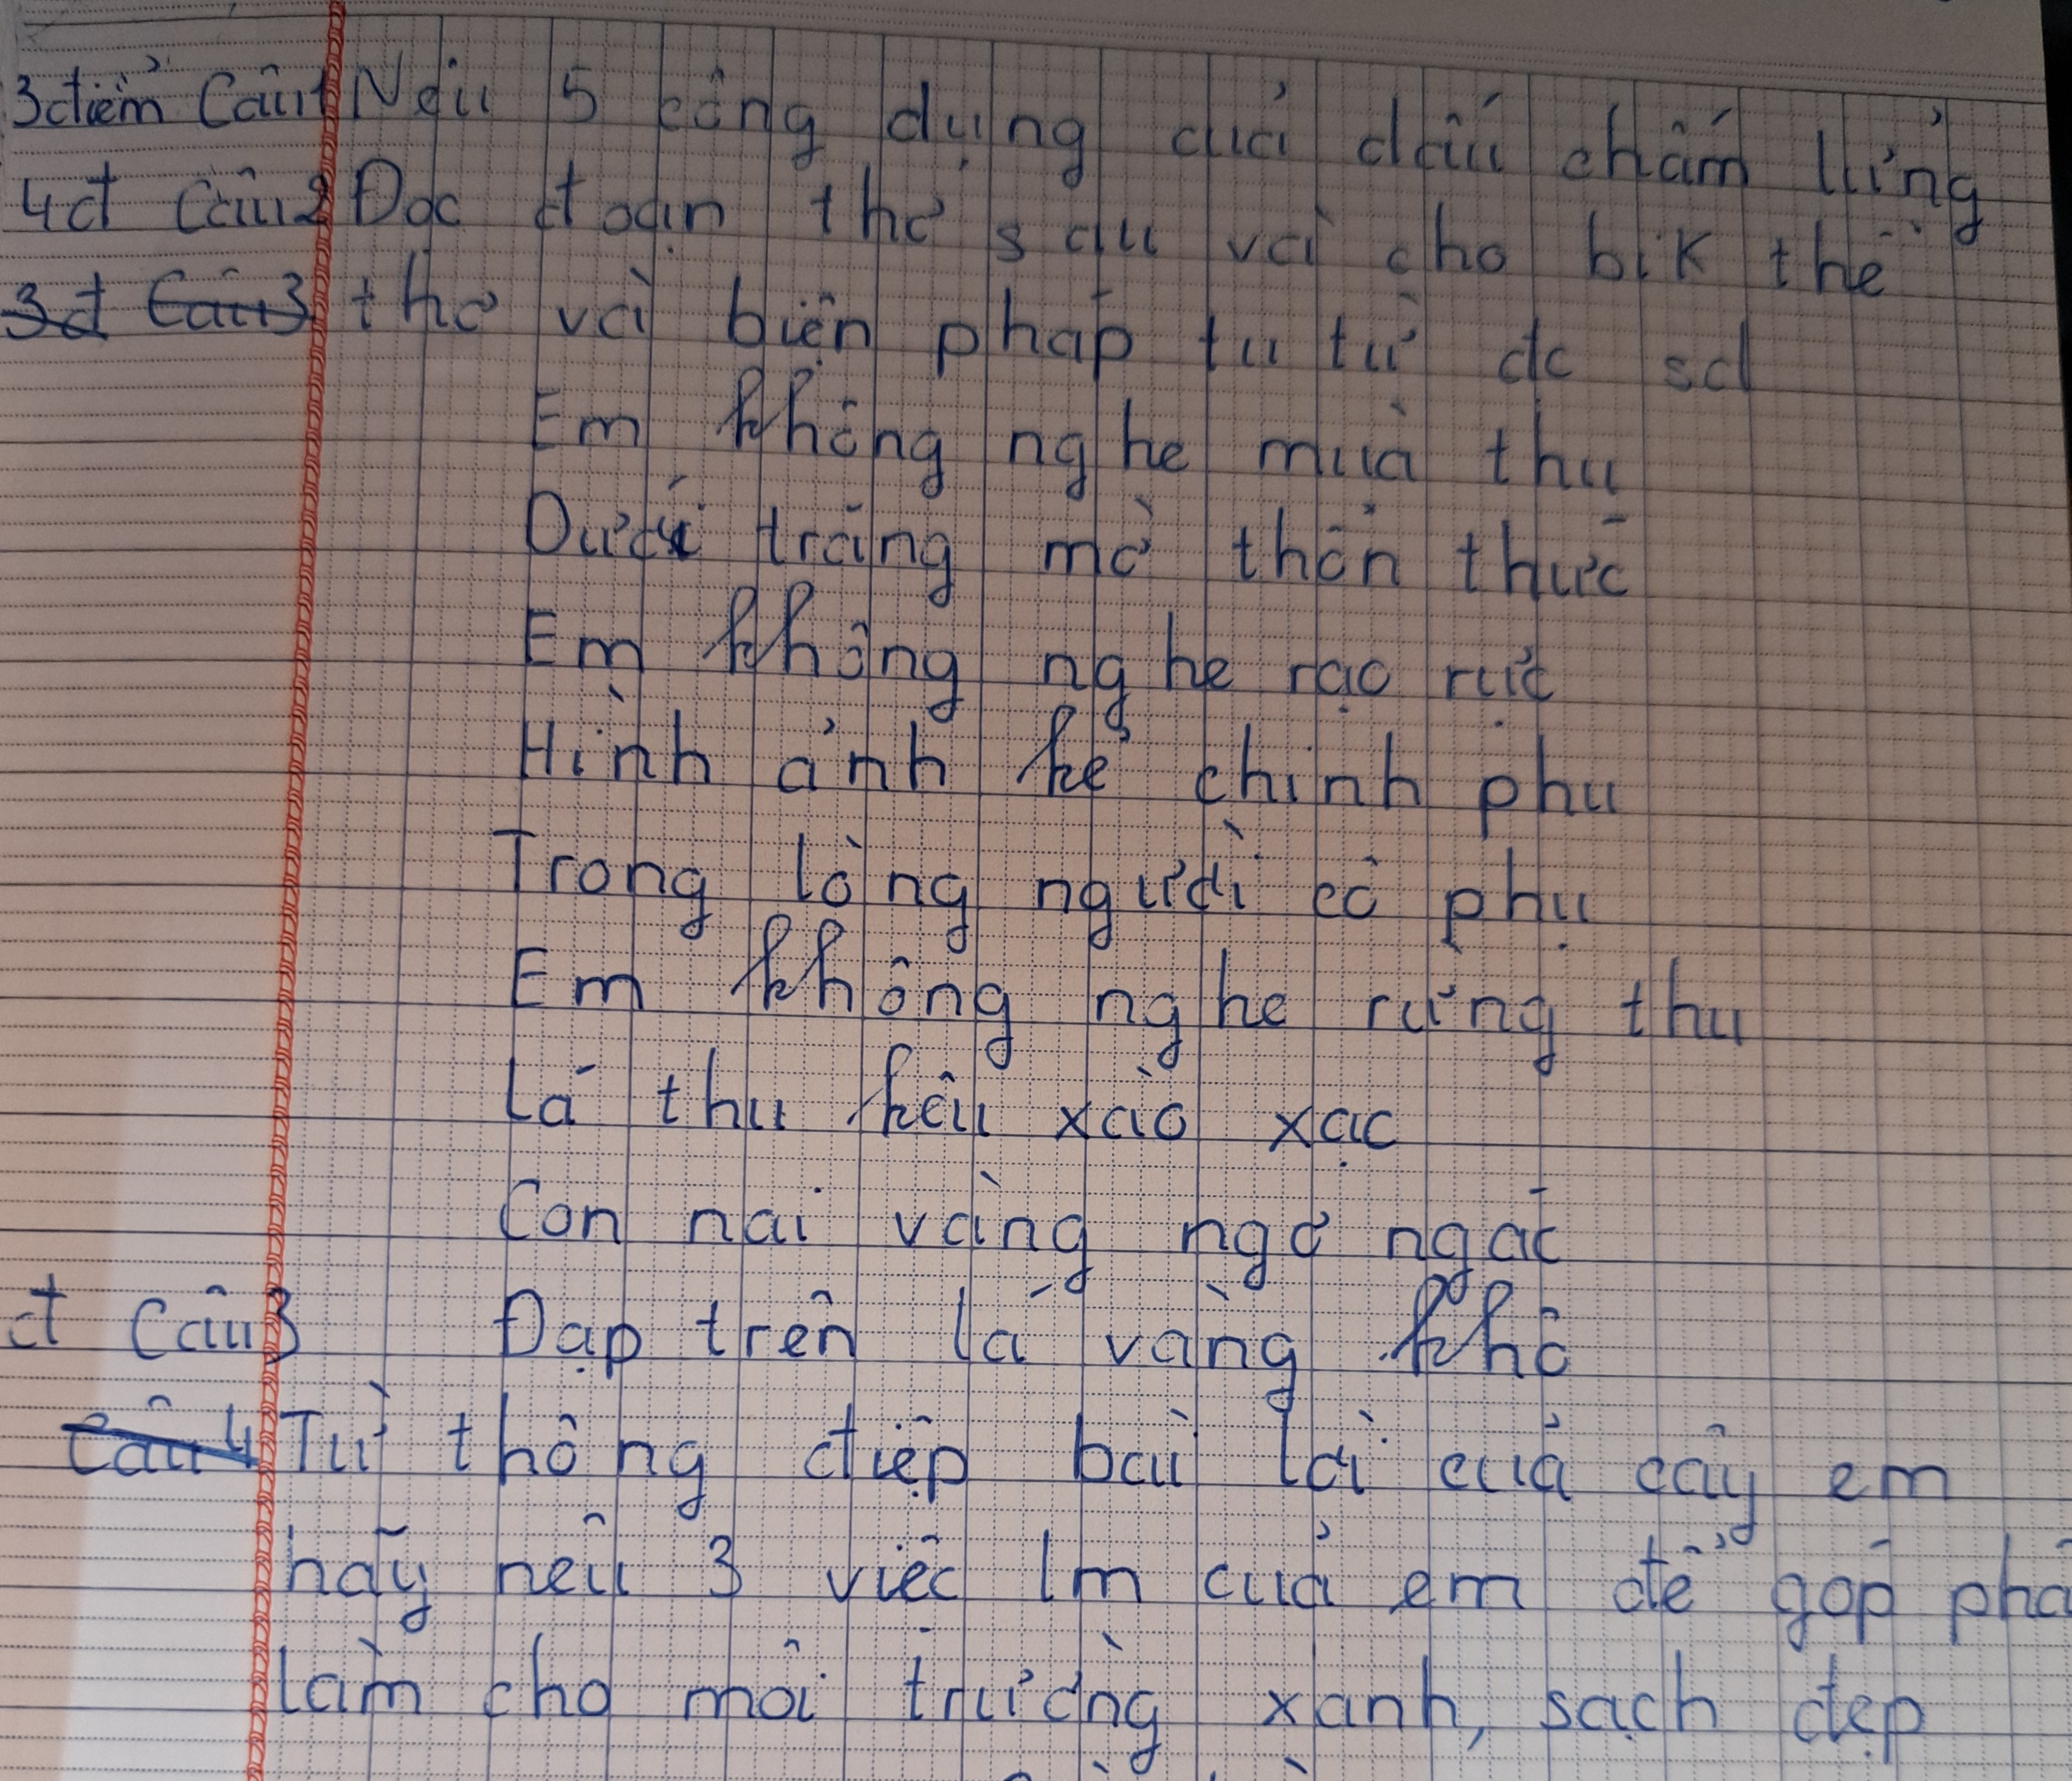 3điểm Câu1 Nêu 5 công dụng của dấu chấm lửng
4đ Câu2 Đọc đoạn thơ sau và cho bik thể
3đ Câu3 thơ và biện pháp tu từ dc sd
Em không nghe mùa thu
Dưới trăng mờ thổn thức
Em không nghe rạo rực
Hình ảnh kẻ chinh phu
Trong lòng người cô phụ
Em không nghe rừng thu
Lá thu kêu xào xạc
Con nai vàng ngơ ngác
đ Câu3 Đạp trên lá vàng khô
Câu4 Từ thông điệp bài lời của cây em
hãy nêu 3 việc lm của em để góp
làm cho môi trường xanh, sạch đẹp